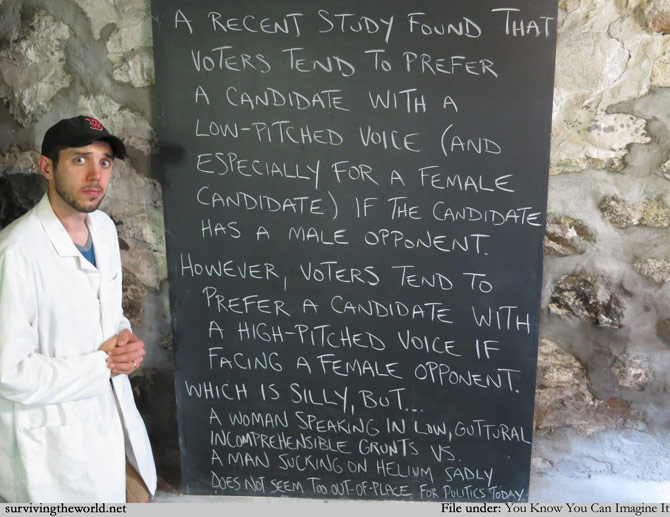 A RECENT STUDY FOUND THAT
VOTERS TEND TO PREFER
A CANDIDATE WITH A
LOW-PITCHED VOICE (AND
ESPECIALLY FOR A FEMALE
CANDIDATE) IF THE CANDIDATE
HAS A MALE OPPONENT.
HOWEVER, VOTERS TEND TO
PREFER A CANDIDATE WITH
A HIGH-PITCHED VOICE IF
FACING A FEMALE OPPONENT.
WHICH IS SILLY, BUT...
A WOMAN SPEAKING IN LOW, GUTTURAL
INCOMPREHENSIBLE GRUNTS VS.
A MAN SUCKING ON HELIUM SADLY
DOES NOT SEEM TOO OUT-OF-PLACE FOR POLITICS TODAY.
survivingtheworld.net
File under: You Know You Can Imagine It